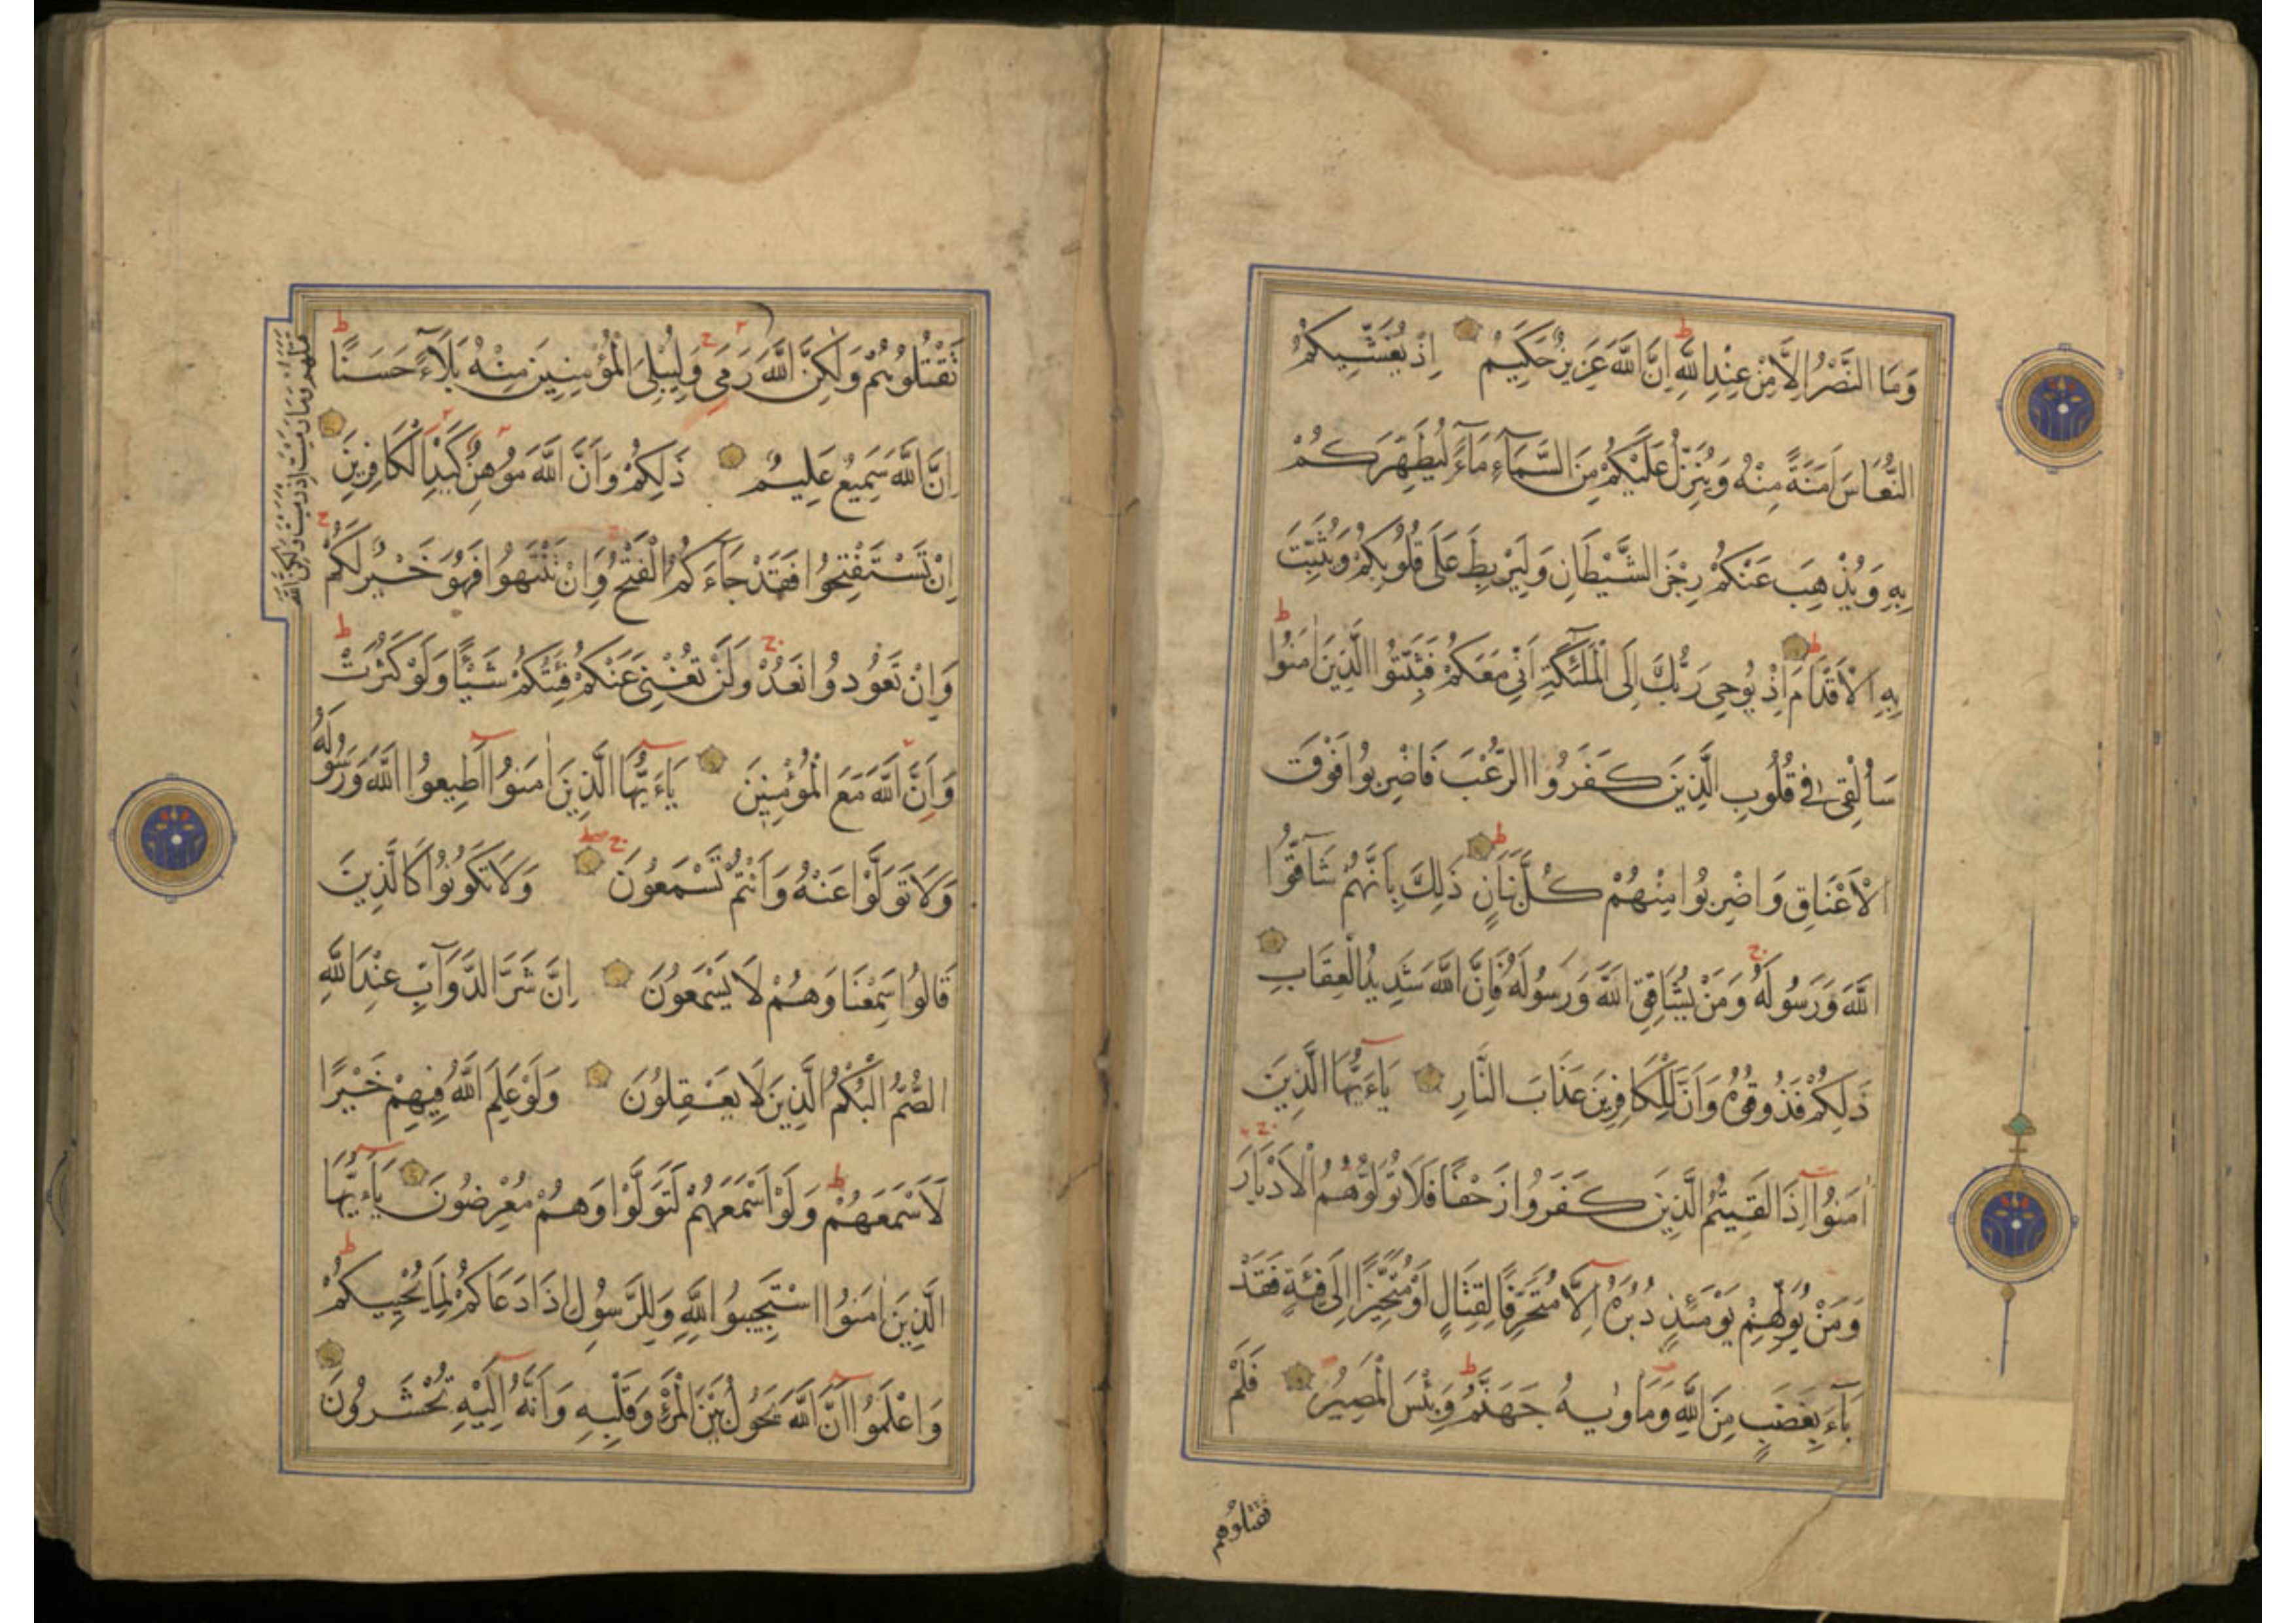 وَمَا النَّصْرُ اِلَّا مِنْ عِنْدِ اللَّهِ اِنَّ اللَّهَ عَزِيزٌ حَكِيمٌ اِذْ يُغَشِّيكُمُ
النُّعَاسَ اَمَنَةً مِنْهُ وَيُنَزِّلُ عَلَيْكُمْ مِنَ السَّمَآءِ مَآءً لِيُطَهِّرَكُمْ
بِهِ وَيُذْهِبَ عَنْكُمْ رِجْزَ الشَّيْطَانِ وَلِيَرْبِطَ عَلَى قُلُوبِكُمْ وَيُثَبِّتَ
بِهِ الْاَقْدَامَ اِذْ يُوحِى رَبُّكَ اِلَى الْمَلٰٓئِكَةِ اَنِّى مَعَكُمْ فَثَبِّتُوا الَّذِينَ اٰمَنُوا
سَاُلْقِى فِى قُلُوبِ الَّذِينَ كَفَرُوا الرُّعْبَ فَاضْرِبُوا فَوْقَ
الْاَعْنَاقِ وَاضْرِبُوا مِنْهُمْ كُلَّ بَنَانٍ ذَلِكَ بِاَنَّهُمْ شَآقُّوا
اللَّهَ وَرَسُولَهُ وَمَنْ يُشَاقِقِ اللَّهَ وَرَسُولَهُ فَاِنَّ اللَّهَ شَدِيدُ الْعِقَابِ
ذَلِكُمْ فَذُوقُوهُ وَاَنَّ لِلْكَافِرِينَ عَذَابَ النَّارِ يَاءَيُّهَا الَّذِينَ
اٰمَنُوٓا اِذَا لَقِيتُمُ الَّذِينَ كَفَرُوا زَحْفًا فَلَا تُوَلُّوهُمُ الْاَدْبَارَ
وَمَنْ يُوَلِّهِمْ يَوْمَئِذٍ دُبُرَهُ اِلَّا مُتَحَرِّفًا لِقِتَالٍ اَوْ مُتَحَيِّزًا اِلَى فِئَةٍ فَقَدْ
بَآءَ بِغَضَبٍ مِنَ اللَّهِ وَمَاْوٰيهُ جَهَنَّمُ وَبِئْسَ الْمَصِيرُ فَلَمْ
تقتلوهم
تَقْتُلُوهُمْ وَلَكِنَّ اللَّهَ رَمَى وَلِيُبْلِىَ الْمُؤْمِنِينَ مِنْهُ بَلَآءً حَسَنًا
قتلهم وما رميت اذ رميت ولكن الله
اِنَّ اللَّهَ سَمِيعٌ عَلِيمٌ ذَلِكُمْ وَاَنَّ اللَّهَ مُوهِنُ كَيْدِ الْكَافِرِينَ
اِنْ تَسْتَفْتِحُوا فَقَدْ جَآءَكُمُ الْفَتْحُ وَاِنْ تَنْتَهُوا فَهُوَ خَيْرٌ لَكُمْ
وَاِنْ تَعُودُوا نَعُدْ وَلَنْ تُغْنِىَ عَنْكُمْ فِئَتُكُمْ شَيْئًا وَلَوْ كَثُرَتْ
وَاَنَّ اللَّهَ مَعَ الْمُؤْمِنِينَ يَاءَيُّهَا الَّذِينَ اٰمَنُوٓا اَطِيعُوا اللَّهَ وَرَسُولَهُ
وَلَا تَوَلَّوْا عَنْهُ وَاَنْتُمْ تَسْمَعُونَ وَلَا تَكُونُوا كَالَّذِينَ
قَالُوا سَمِعْنَا وَهُمْ لَا يَسْمَعُونَ اِنَّ شَرَّ الدَّوَآبِّ عِنْدَ اللَّهِ
الصُّمُّ الْبُكْمُ الَّذِينَ لَا يَعْقِلُونَ وَلَوْ عَلِمَ اللَّهُ فِيهِمْ خَيْرًا
لَاَسْمَعَهُمْ وَلَوْ اَسْمَعَهُمْ لَتَوَلَّوْا وَهُمْ مُعْرِضُونَ يَاءَيُّهَا
الَّذِينَ اٰمَنُوا اسْتَجِيبُوا لِلَّهِ وَلِلرَّسُولِ اِذَا دَعَاكُمْ لِمَا يُحْيِيكُمْ
وَاعْلَمُوٓا اَنَّ اللَّهَ يَحُولُ بَيْنَ الْمَرْءِ وَقَلْبِهِ وَاَنَّهُ اِلَيْهِ تُحْشَرُونَ